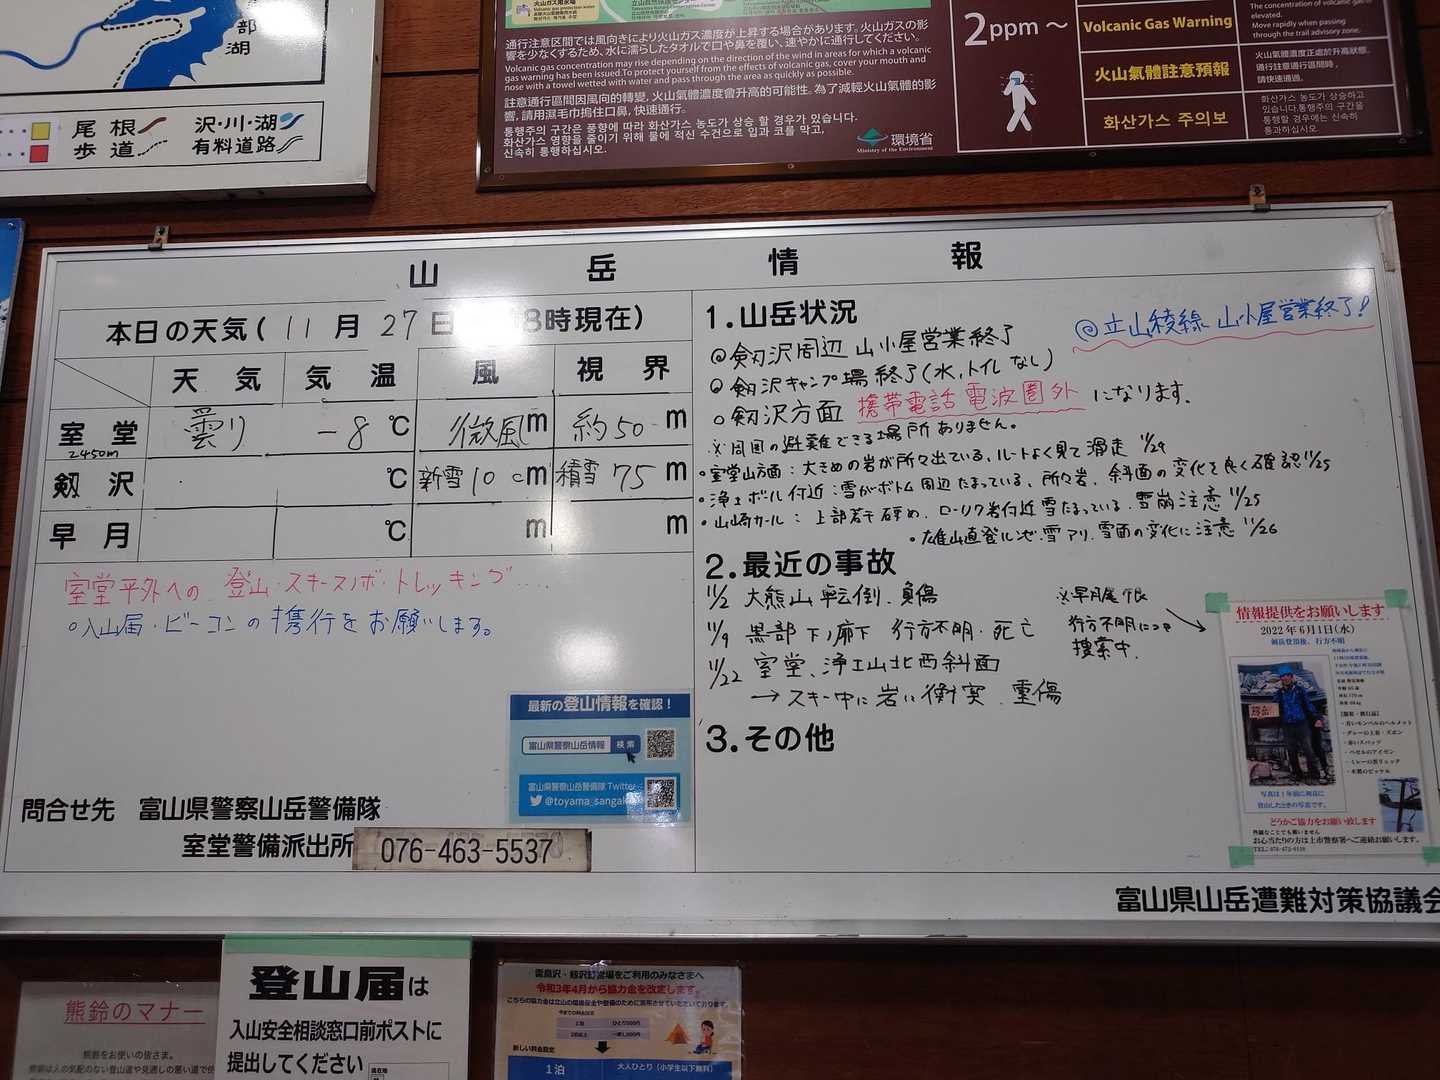 部
湖
尾根
沢・川・湖
歩道
有料道路
火山ガス用水場
通行注意区間では風向きにより火山ガス濃度が上昇する場合があります。火山ガスの影
響を少なくするため、水に濡らしたタオルで口や鼻を覆い、速やかに通行してください。
Volcanic gas concentration may rise depending on the direction of the wind in areas for which a volcanic
gas warning has been issued.To protect yourself from the effects of volcanic gas, cover your mouth and
nose with a towel wetted with water and pass through the area as quickly as possible.
註意通行區間因風向的轉變，火山氣體濃度會升高的可能性。為了減輕火山氣體的影
響，請用濕毛巾摀住口鼻，快速通行。
통행주의 구간은 풍향에 따라 화산가스 농도가 상승 할 경우가 있습니다.
화산가스 영향을 줄이기 위해 물에 적신 수건으로 입과 코를 막고,
신속히 통행하십시오.
環境省
Ministry of the Environment
2ppm～
Volcanic Gas Warning
The concentration of volcanic gas is
elevated.
Move rapidly when passing
through the trail advisory zone.
火山氣體註意預報
火山氣體濃度正處於升高狀態。
通行註意通行區間時，
請快速通過。
화산가스 주의보
화산가스 농도가 상승하고
있습니다.통행주의 구간을
통행할 경우에는 신속히
통과하십시오.
山岳情報
本日の天気(11月27日 8時現在)
天気 気温 風 視界
室堂 2450m 曇り -8℃ 微風m 約50m
剱沢 ℃ 新雪10cm 積雪75m
早月 ℃ m m
室堂平外への登山・スキースノボ・トレッキング....
○入山届・ビーコンの携行をお願いします。
最新の登山情報を確認！
富山県警察山岳情報 検索
富山県警察山岳警備隊 Twitter
@toyama_sangak
問合せ先 富山県警察山岳警備隊
室堂警備派出所 076-463-5537
1.山岳状況
◎立山稜線 山小屋営業終了!
◎剱沢周辺 山小屋営業終了
◎剱沢キャンプ場終了(水,トイレなし)
○剱沢方面 携帯電話電波圏外になります.
※周囲の避難できる場所ありません。
・室堂山方面：大きめの岩が所々出ている、ルートよく見て滑走 11/24
・浄土ボール付近：雪がボトム周辺たまっている、所々岩、斜面の変化を良く確認 11/25
・山崎カール：上部若干硬め、ローリク岩付近雪たまっている、雪崩注意 11/25
・雄山直登ルンゼ.雪アリ.雪面の変化に注意 11/26
2.最近の事故
11/2 大熊山 転倒.負傷
11/9 黒部下ノ廊下 行方不明・死亡
11/22 室堂、浄土山北西斜面
→スキー中に岩に衝突.重傷
※早月尾根
行方不明につき
捜索中.
3.その他
情報提供をお願いします
2022年6月1日(水)
剱岳登頂後、行方不明
・青いモンベルのヘルメット
・グレーの上着・ズボン
・赤いスパッツ
・ペツルのアイゼン
・ミレーの黒リュック
・木製のピッケル
写真は1年前に剱岳に
登山したときの写真です。
どうかご協力をお願い致します
外線なことでも構いません
お心当たりの方は上市警察署へご連絡お願いします。
TEL：076-472-0110
富山県山岳遭難対策協議会
熊鈴のマナー
熊鈴をお使いの皆さま。
登山届は
入山安全相談窓口前ポストに
提出してください
雷鳥沢・剱沢野営場をご利用のみなさまへ
令和3年4月から協力金を改定します。
新しい料金設定
1泊 大人ひとり(小学生以下無料)